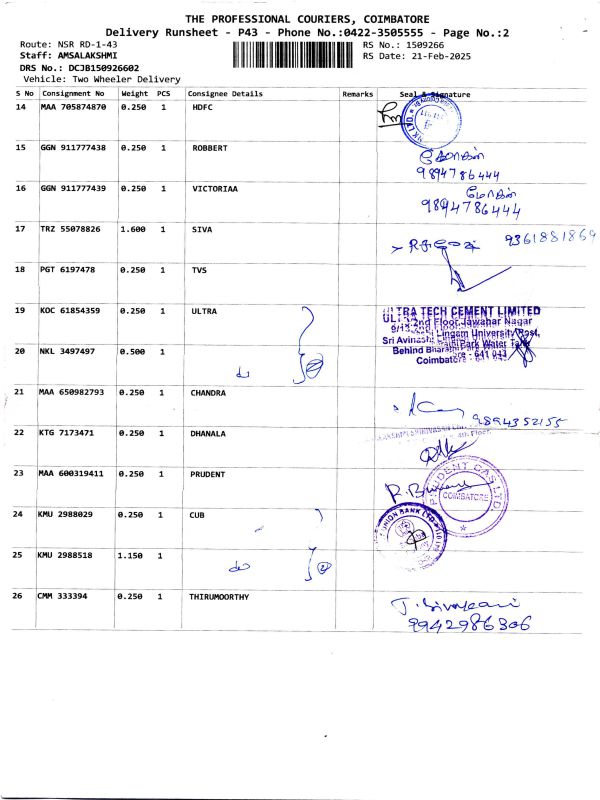 THE PROFESSIONAL COURIERS, COIMBATORE
Delivery Runsheet - P43 - Phone No.:0422-3505555 - Page No.:2
Route: NSR RD-1-43
RS No.: 1509266
Staff: AMSALAKSHMI
RS Date: 21-Feb-2025
DRS No.: DCJB150926602
Vehicle: Two Wheeler Delivery
S No Consignment No Weight PCS Consignee Details Remarks Seal & Signature
14 MAA 705874870 0.250 1 HDFC
15 GGN 911777438 0.250 1 ROBBERT
9894786444
16 GGN 911777439 0.250 1 VICTORIAA மோகன்
9894786444
17 TRZ 55078826 1.600 1 SIVA 9361881869
18 PGT 6197478 0.250 1 TVS
19 KOC 61854359 0.250 1 ULTRA
ULTRA TECH CEMENT LIMITED
2nd Floor, Jawahar Nagar
Lingam University Post,
Sri Avinashi
Park Water Tank
Behind Bharathi
Coimbatore - 641 043
20 NKL 3497497 0.500 1 do
21 MAA 650982793 0.250 1 CHANDRA
9894352155
22 KTG 7173471 0.250 1 DHANALA
23 MAA 600319411 0.250 1 PRUDENT
PRUDENT GAS LTD.
COIMBATORE
24 KMU 2988029 0.250 1 CUB
UNION BANK LTD
25 KMU 2988518 1.150 1 do 2
26 CMM 333394 0.250 1 THIRUMOORTHY
9942986306